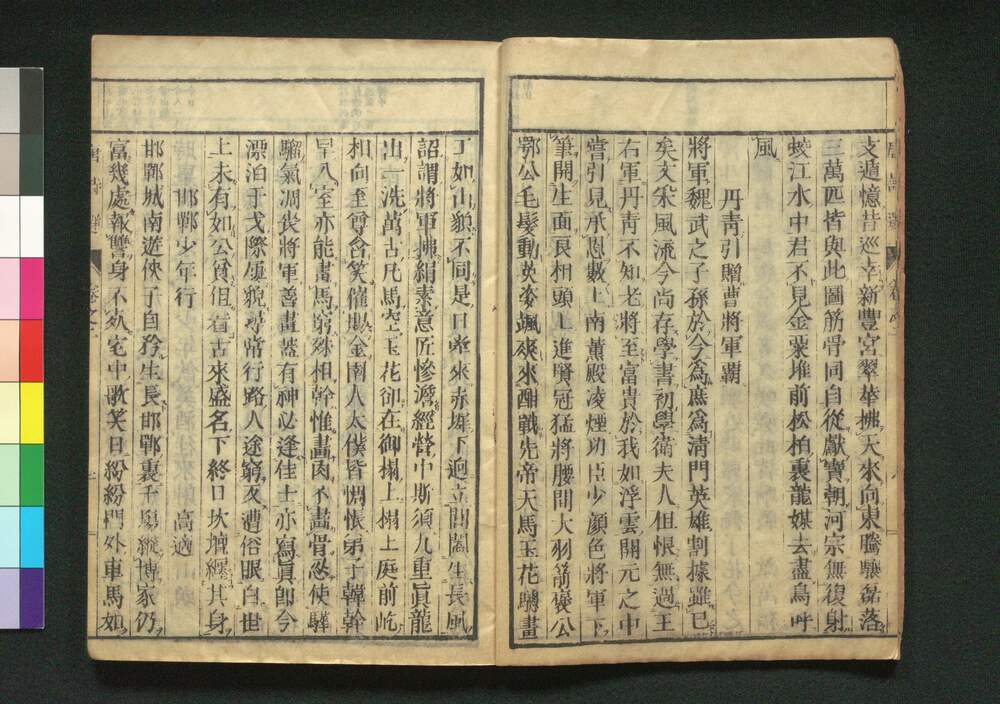 支遁憶昔巡幸新豐宮翠華拂天來向東騰驤磊落
三萬匹皆與此圖筋骨同自從獻寶朝河宗無復射
蛟江水中君不見金粟堆前松柏裏龍媒去盡鳥呼
風
丹靑引贈曹將軍霸
將軍魏武之子孫於今為庶爲淸門英雄割據雖已
矣文采風流今尚存學書初學衛夫人但恨無過王
右軍丹靑不知老將至富貴於我如浮雲開元之中
嘗引見承恩數上南薰殿凌煙功臣少顏色將軍下
筆開生面良相頭上進賢冠猛將腰間大羽箭褒公
鄂公毛髮動英姿颯爽來酣戰先帝天馬玉花驄畫
工如山貌不同是日牽來赤墀下迥立閶闔生長風
詔謂將軍拂絹素意匠慘澹經營中斯須九重眞龍
出一洗萬古凡馬空玉花卻在御榻上榻上庭前屹
相向至尊含笑催賜金圉人太僕皆惆悵弟子韓幹
早入室亦能畫馬窮殊相幹惟畫肉不畫骨忍使驊
騮氣凋喪將軍善畫蓋有神必逢佳士亦寫眞卽今
漂泊干戈際屢貌尋常行路人途窮反遭俗眼白世
上未有如公貧但看古來盛名下終日坎壈纒其身
邯鄲少年行 高適
邯鄲城南遊俠子自矜生長邯鄲裏千場縱博家仍
富幾處報讐身不死宅中歌笑日紛紛門外車馬如
唐詩選